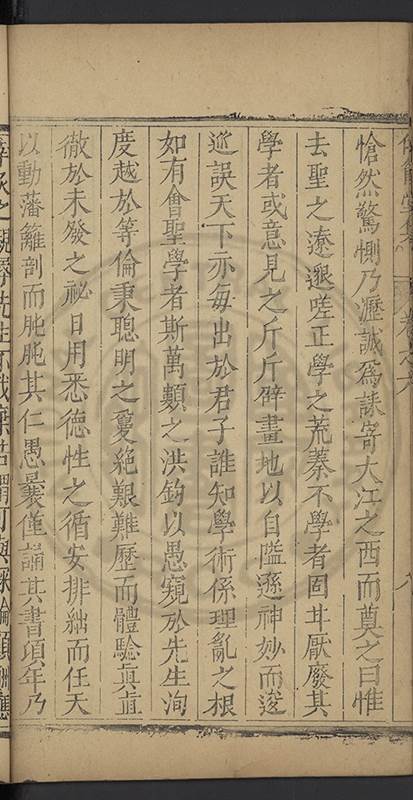 愴然驚惻乃瀝誠為誄寄大江之西而奠之曰惟
去聖之遼邈嗟正學之荒蓁不學者固甘厭廢其
學者或意見之斤斤辟畫地以自隘遜神妙而逡
巡誤天下亦每出於君子誰知學術係理亂之根
如有會聖學者斯萬類之洪鈞以愚窺於先生洵
度越於等倫秉聰明之敻絶艱難歷而體驗真直
徹於未發之祕日用悉德性之循安排絀而任天
以動藩籬剖而肫肫其仁愚曩僅誦其書頃年乃